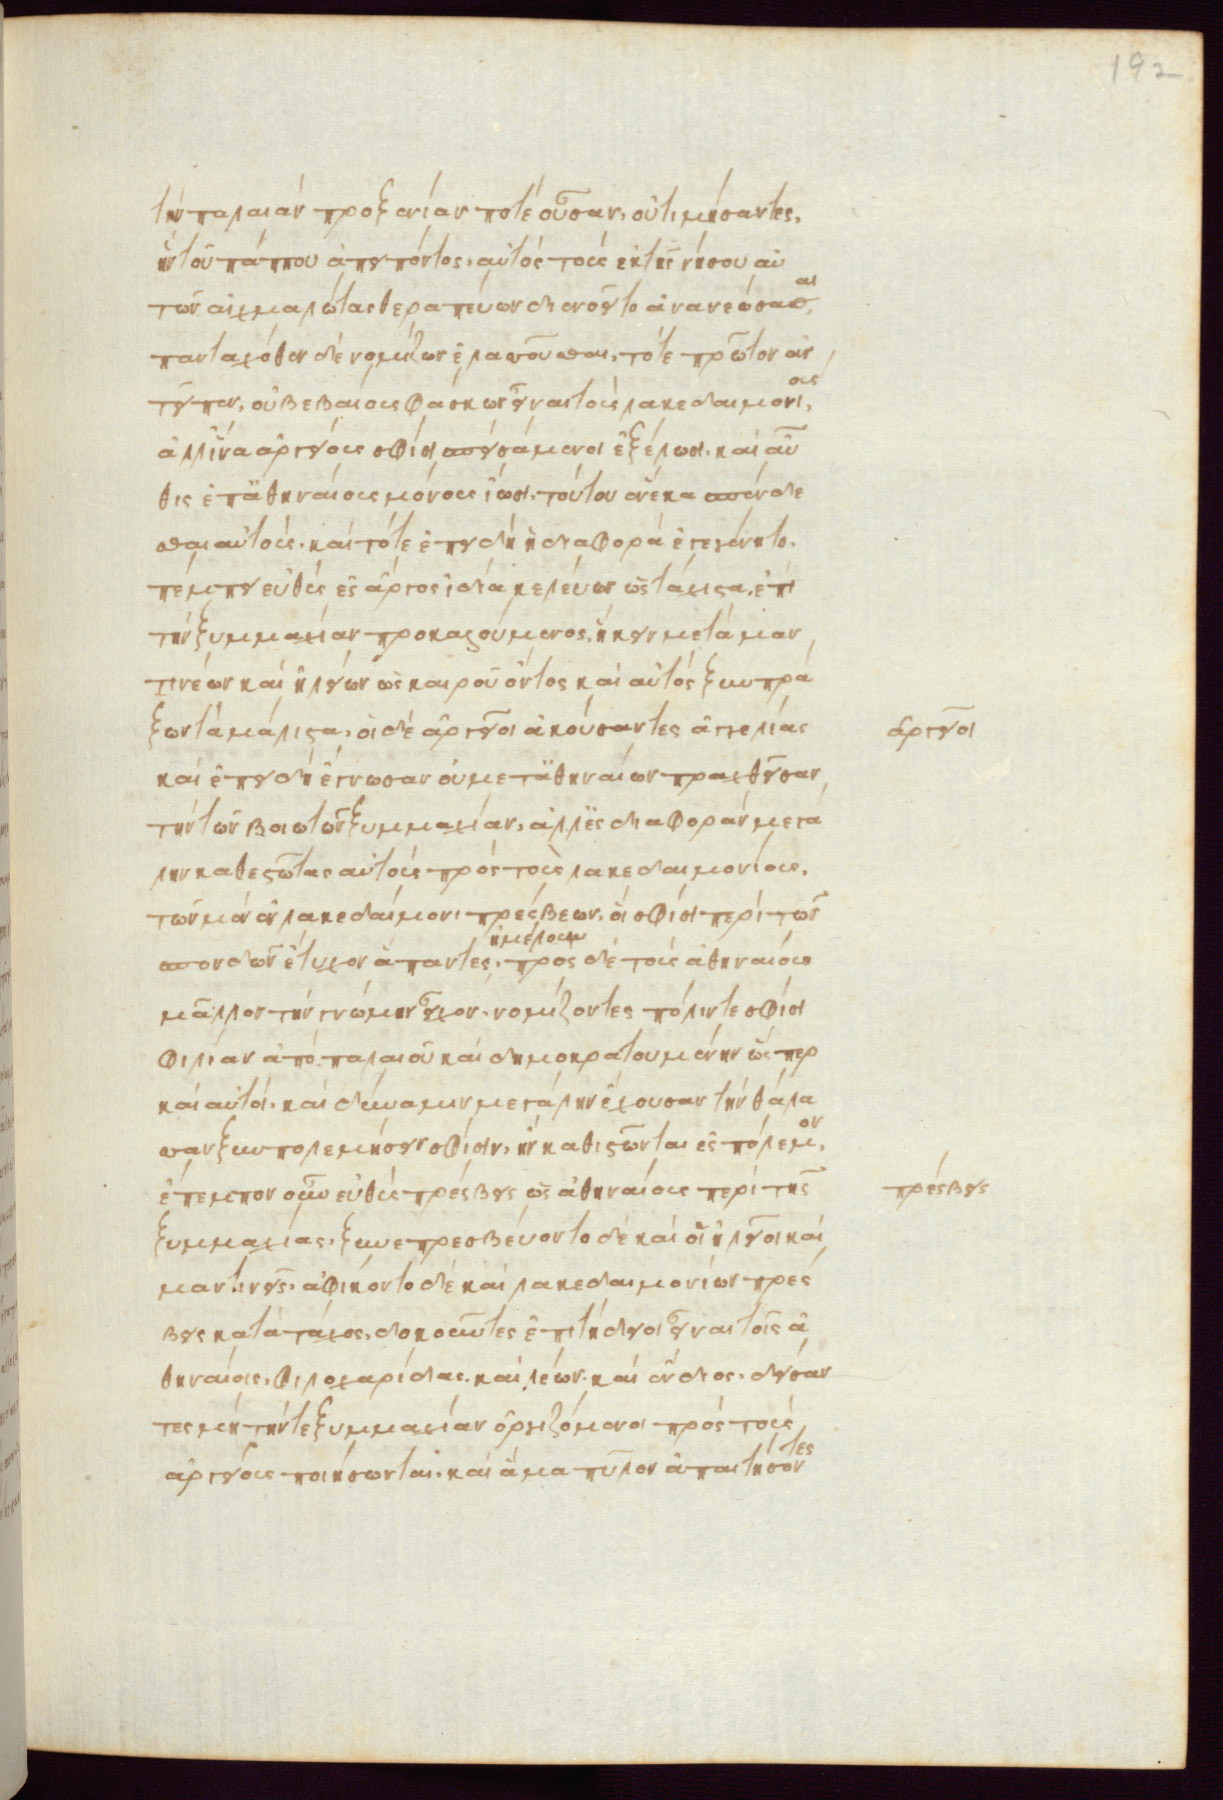 192
τὴν παλαιὰν προξενίαν ποτὲ οὖσαν, οὐ τιμήσαντες,
ἣν τοῦ πάππου ἀπειπόντος, αὐτὸς τοὺς ἐκ τῆς νήσου αὐ
τῶν αἰχμαλώτας θεραπεύων διενοεῖτο ἀνανεώσασθαι,
πανταχόθεν δὲ νομίζων ἐλασσοῦσθαι, τότε πρῶτον ἀν
τεῖπεν, οὐ βεβαίους φάσκων εἶναι τοὺς λακεδαιμονίους,
ἀλλ' ἵνα ἀργείους σφίσι σπεισάμενοι ἐξέλωσι, καὶ αὖ
θις ἐπ' ἀθηναίους μόνους ἴωσι, τούτου ἕνεκα σπένδε
σθαι αὐτούς. καὶ τότε ἐπειδὴ ἡ διαφορὰ ἐγεγένητο.
πέμπει εὐθὺς ἐς ἄργος ἰδίᾳ κελεύων ὡς τάχιστα, ἐπὶ
τὴν ξυμμαχίαν προκαλουμένους, ἥκειν μετὰ μαν
τινέων καὶ ἠλείων ὡς καιροῦ ὄντος καὶ αὐτὸς ξυμπρά
ξων τὰ μάλιστα, οἱ δὲ ἀργεῖοι ἀκούσαντες ἀγγελίας
ἀργεῖοι
καὶ ἐπειδὴ ἔγνωσαν οὐ μετ' ἀθηναίων πραχθεῖσαν
τὴν τῶν βοιωτῶν ξυμμαχίαν, ἀλλ' ἐς διαφορὰν μεγά
λην καθεστῶτας αὐτοὺς πρὸς τοὺς λακεδαιμονίους,
τῶν μὲν ἐν λακεδαίμονι πρέσβεων, οἳ σφίσι περὶ τῶν
σπονδῶν ἔτυχον ἀπαντες, ἠμέλουν πρὸς δὲ τοὺς ἀθηναίους
μᾶλλον τὴν γνώμην εἶχον, νομίζοντες πόλιν τε σφίσι
φιλίαν ἀπὸ παλαιοῦ καὶ δημοκρατουμένην ὥσπερ
καὶ αὐτοί, καὶ δύναμιν μεγάλην ἔχουσαν τὴν θάλα
σσαν ξυμπολεμήσειν σφίσιν, ἢν καθιστῶνται ἐς πόλεμον,
ἔπεμπον οὖν εὐθὺς πρέσβεις ὡς ἀθηναίους περὶ τῆς
πρέσβεις
ξυμμαχίας, ξυνεπρεσβεύοντο δὲ καὶ οἱ ἠλεῖοι καὶ
μαντινεῖς, ἀφίκοντο δὲ καὶ λακεδαιμονίων πρέσ
βεις κατὰ τάχος, δοκοῦντες ἐπιτήδειοι εἶναι τοῖς ἀ
θηναίοις, φιλοχαρίδας, καὶ λέων, καὶ ἔνδιος, δείσαν
τες μὴ τήν τε ξυμμαχίαν ὀργιζόμενοι πρὸς τοὺς
ἀργείους ποιήσωνται, καὶ ἅμα πύλον ἀπαιτήσοντες